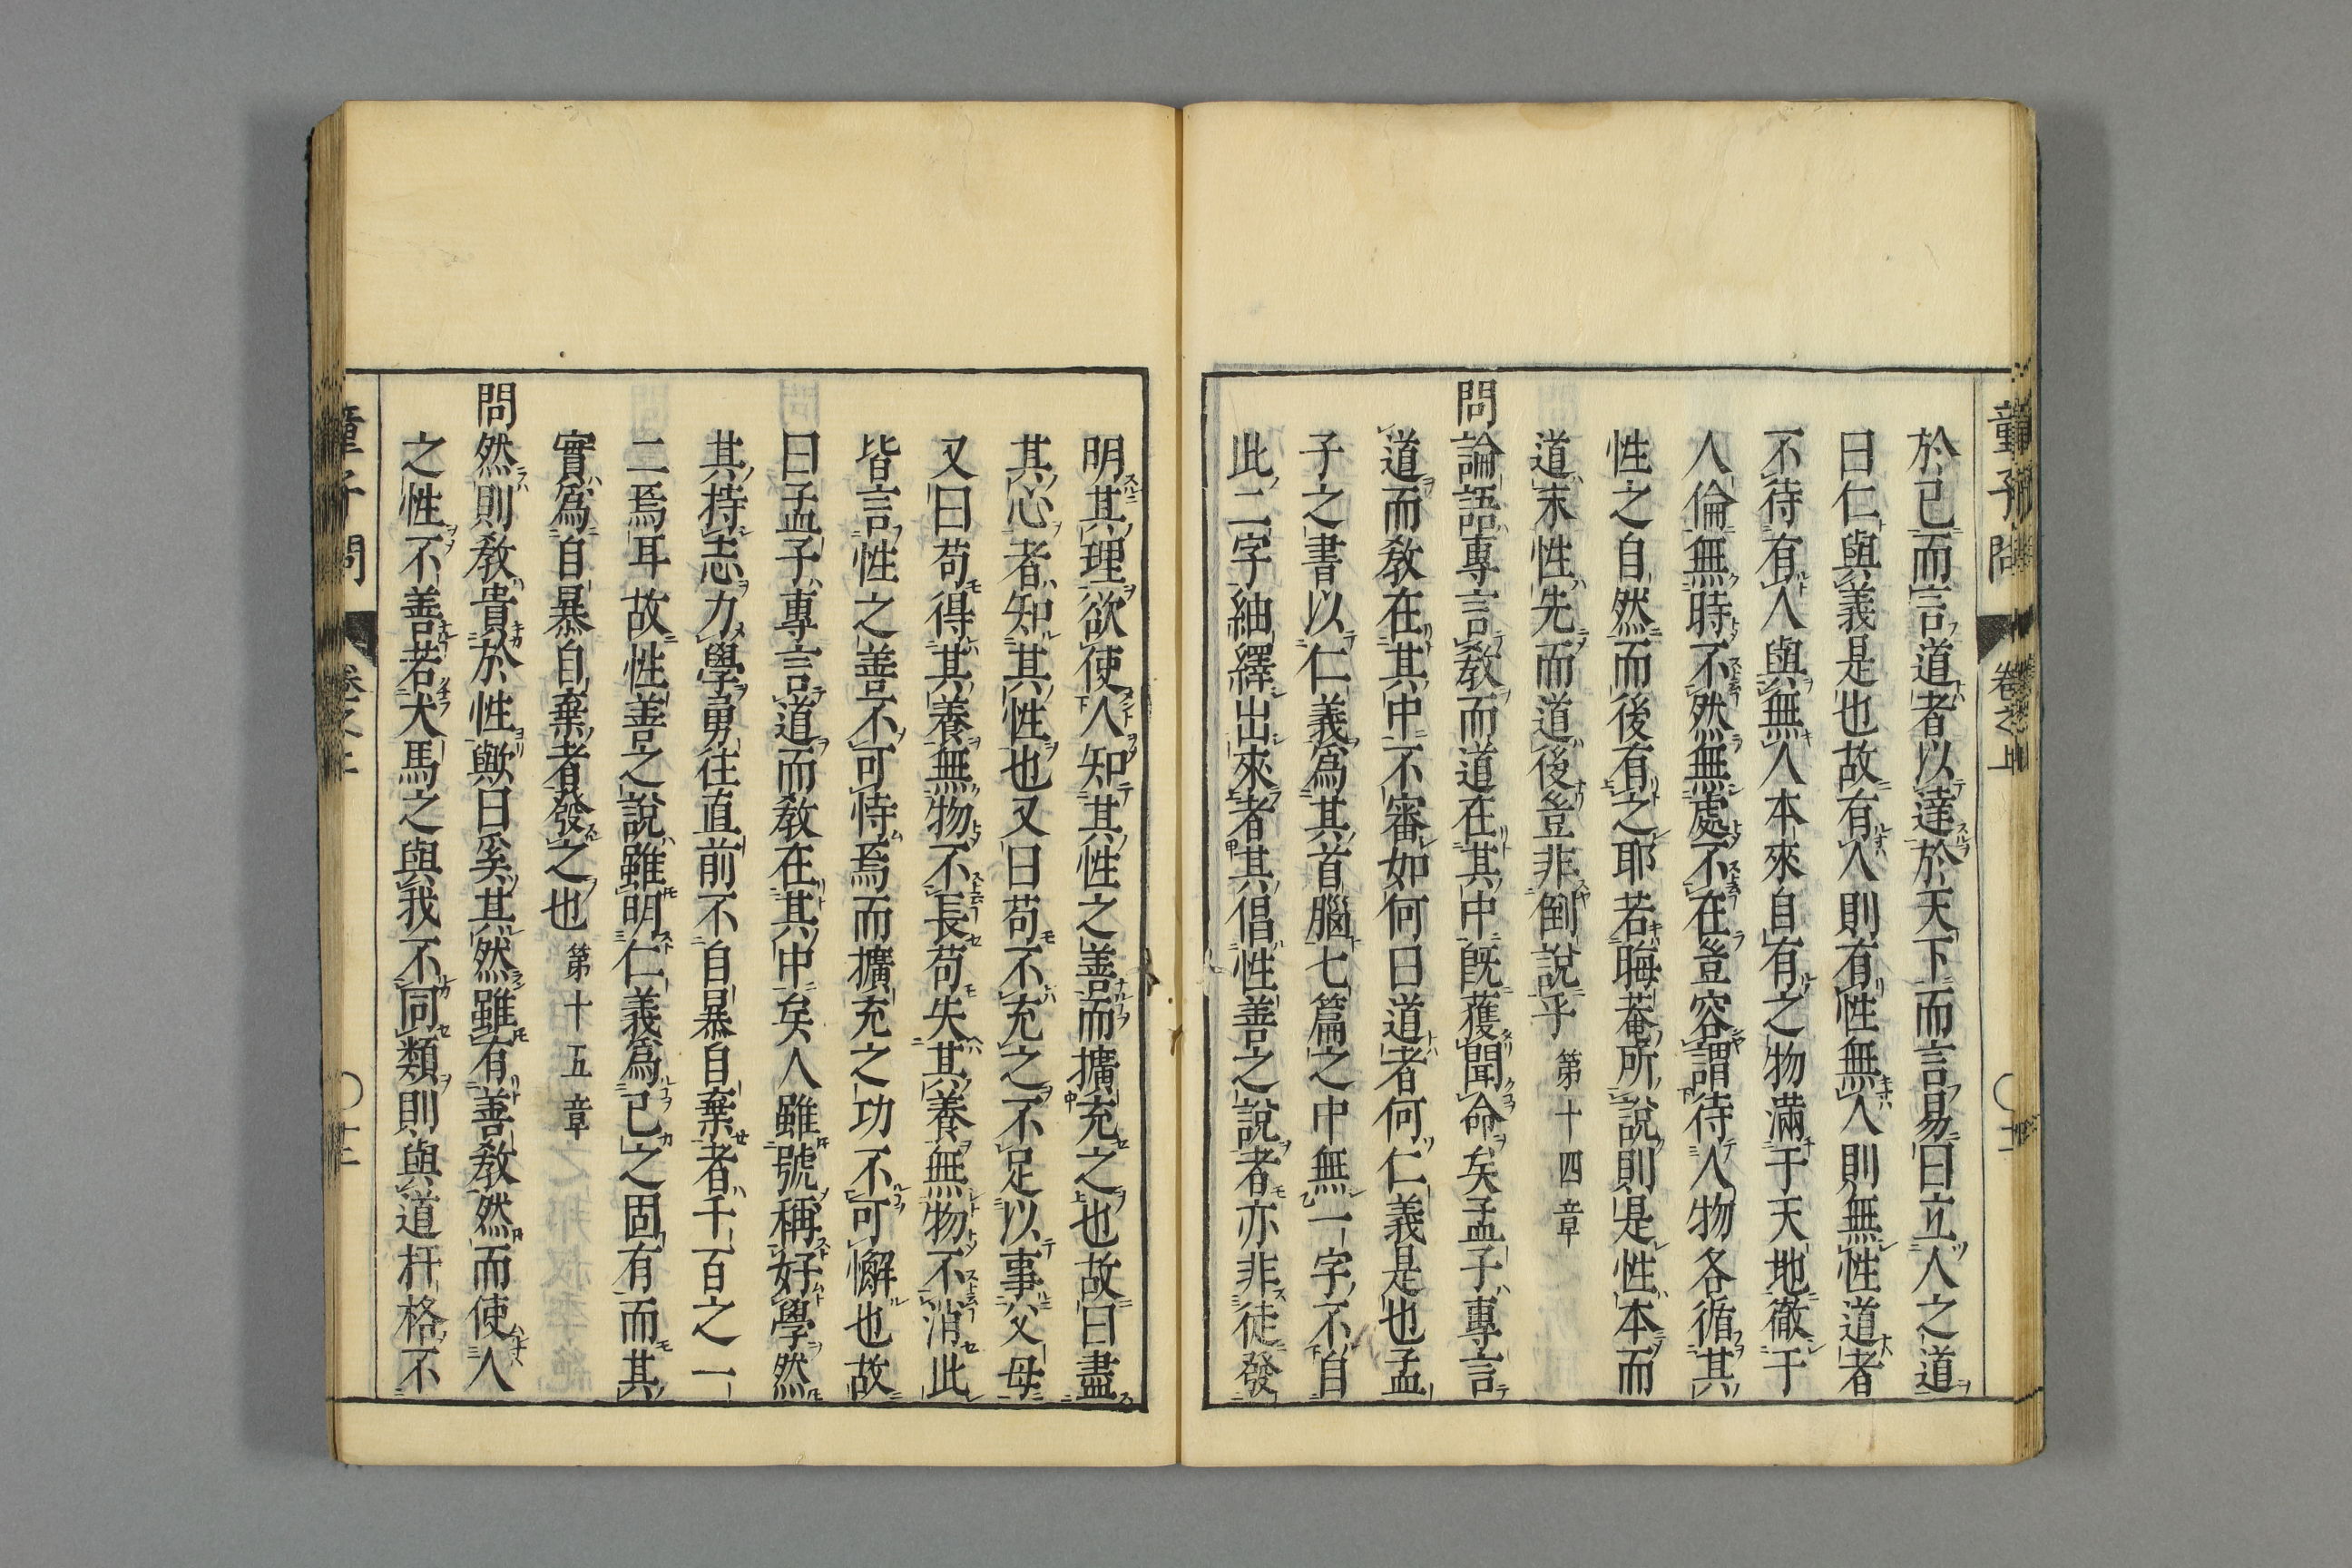 童子問 卷之上
於已而言道者以達於天下而言易曰立人之道
曰仁與義是也故有人則有性無人則無性道者
不待有人與無人本來自有之物滿于天地徹于
人倫無時不然無處不在豈容謂待人物各循其
性之自然而後有之耶若晦菴所說則是性本而
道末性先而道後豈非倒說乎 第十四章
問論語專言教而道在其中既獲聞命矣孟子專言
道而教在其中不審如何曰道者何仁義是也孟
子之書以仁義爲其首腦七篇之中無一字不自
此二字紬繹出來者其倡性善之說者亦非徒發
明其理欲使人知其性之善而擴充之也故曰盡
其心者知其性也又曰苟不充之不足以事父母
又曰苟得其養無物不長苟失其養無物不消此
皆言性之善不可恃焉而擴充之功不可懈也故
曰孟子專言道而教在其中矣人雖號稱好學然
其持志力學勇往直前不自暴自棄者千百之一
二焉耳故性善之說雖明仁義爲己之固有而其
實爲自暴自棄者發之也 第十五章
問然則教貴於性歟曰奚其然雖有善教然而使人
之性不善若犬馬之與我不同類則與道扞格不
童子問